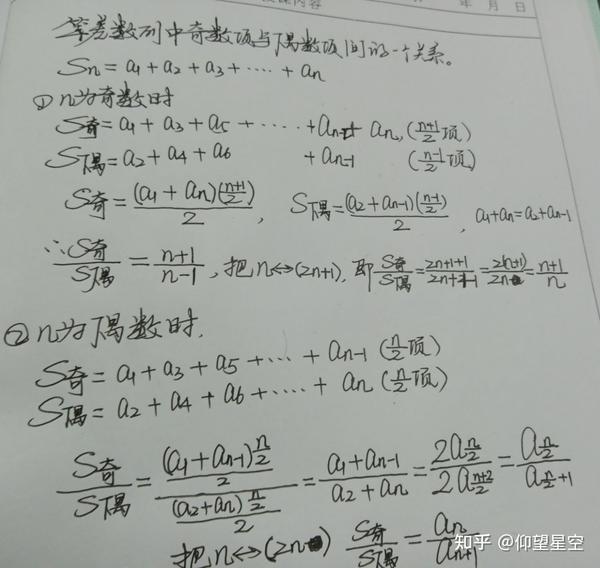 课内容 年 月 日
等差数列中奇数项与偶数项间的一个关系。
Sn = a₁ + a₂ + a₃ + ···· + an
① n为奇数时
S奇 = a₁ + a₃ + a₅ + ···· + an, (n+1/2项)
S偶 = a₂ + a₄ + a₆ + an-1 (n-1/2项)
S奇 = (a₁ + an)(n+1/2)/2, S偶 = (a₂ + an-1)(n-1/2)/2, a₁+an = a₂+an-1
∴ S奇/S偶 = n+1/n-1, 把n↔(2n+1), 即 S奇/S偶 = 2n+1+1/2n+1-1 = 2(n+1)/2n = n+1/n
② n为偶数时,
S奇 = a₁ + a₃ + a₅ + ··· + an-1 (n/2项)
S偶 = a₂ + a₄ + a₆ + ···· + an (n/2项)
S奇/S偶 = (a₁ + an-1)n/2/2 / (a₂ + an)n/2/2 = a₁ + an-1/a₂ + an = 2a n/2/2a n+2/2 = a n/2/a n/2+1
把n↔(2n) S奇/S偶 = an/an+1
知乎 @仰望星空